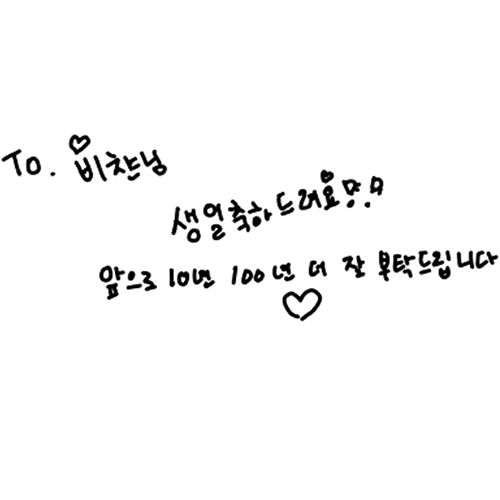 To. 비챤님
생일축하드려요맘.ㅁ
앞으로 10년 100년 더 잘 부탁드립니다